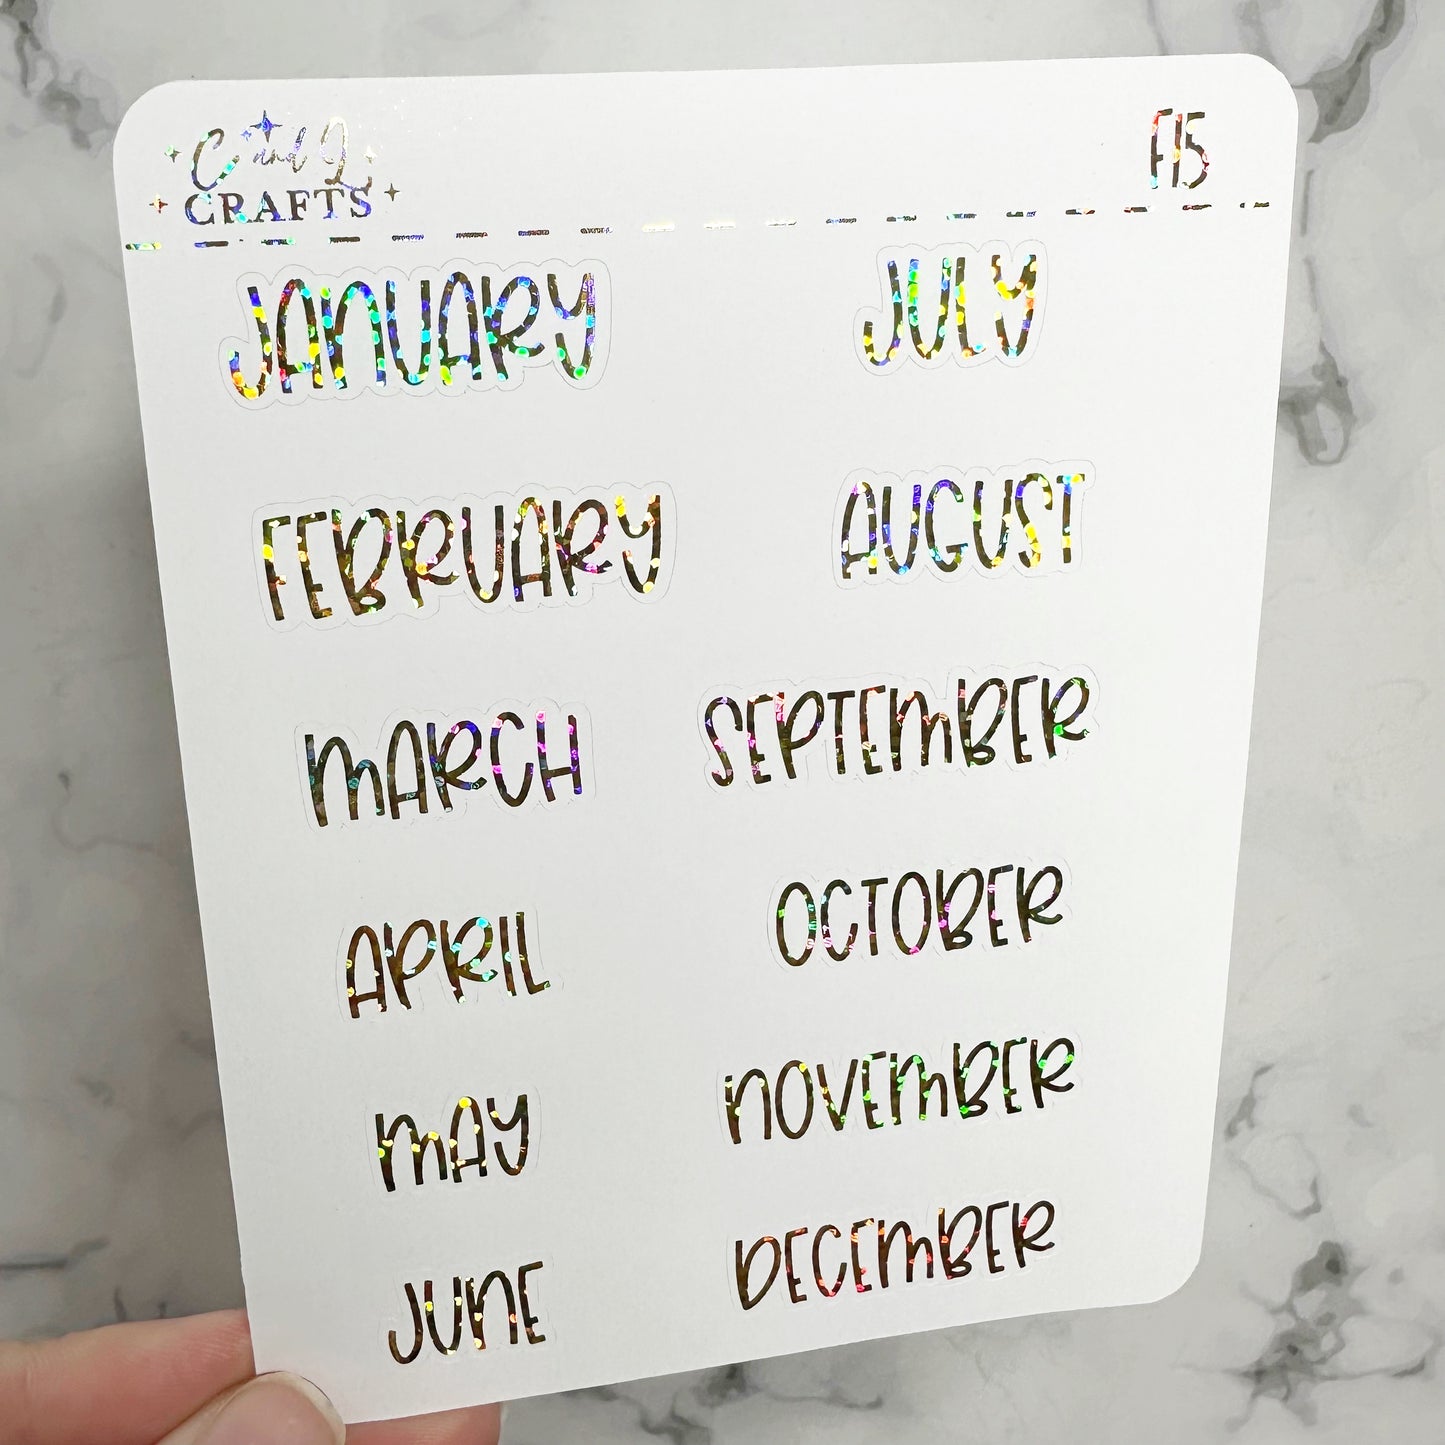 C and L
CRAFTS
F15
JANUARY
FEBRUARY
MARCH
APRIL
MAY
JUNE
JULY
AUGUST
SEPTEMBER
OCTOBER
NOVEMBER
DECEMBER